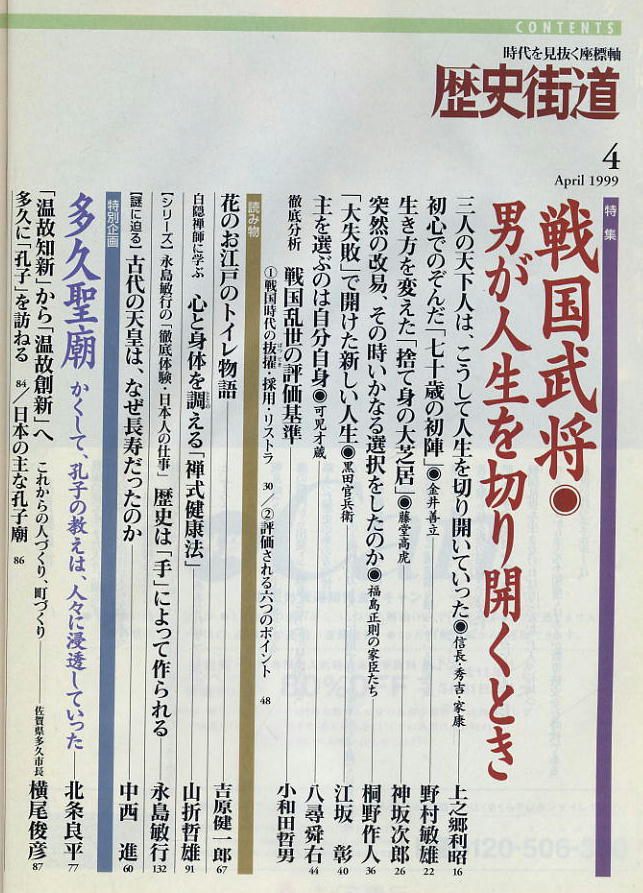 CONTENTS
時代を見抜く座標軸
歴史街道
4
April 1999
特集
戦国武将◉
男が人生を切り開くとき
三人の天下人は、こうして人生を切り開いていった◉信長・秀吉・家康 上之郷利昭 16
初心でのぞんだ「七十歳の初陣」◉金井善立 野村敏雄 22
生き方を変えた「捨て身の大芝居」◉藤堂高虎 神坂次郎 26
突然の改易、その時いかなる選択をしたのか◉福島正則の家臣たち 桐野作人 36
「大失敗」で開けた新しい人生◉黒田官兵衛 江坂 彰 40
主を選ぶのは自分自身◉可児才蔵 八尋舜右 44
徹底分析 戦国乱世の評価基準 小和田哲男
①戦国時代の抜擢・採用・リストラ 30/②評価される六つのポイント 48
読み物
花のお江戸のトイレ物語 吉原健一郎 67
白隠禅師に学ぶ 心と身体を調える「禅式健康法」 山折哲雄 91
【シリーズ】永島敏行の「徹底体験・日本人の仕事」 歴史は「手」によって作られる 永島敏行 132
【謎に迫る】古代の天皇は、なぜ長寿だったのか 中西 進 60
特別企画
多久聖廟 かくして、孔子の教えは、人々に浸透していった 北条良平 77
「温故知新」から「温故創新」へ これからの人づくり、町づくり 佐賀県多久市長 横尾俊彦 87
多久に「孔子」を訪ねる 84/日本の主な孔子廟 86